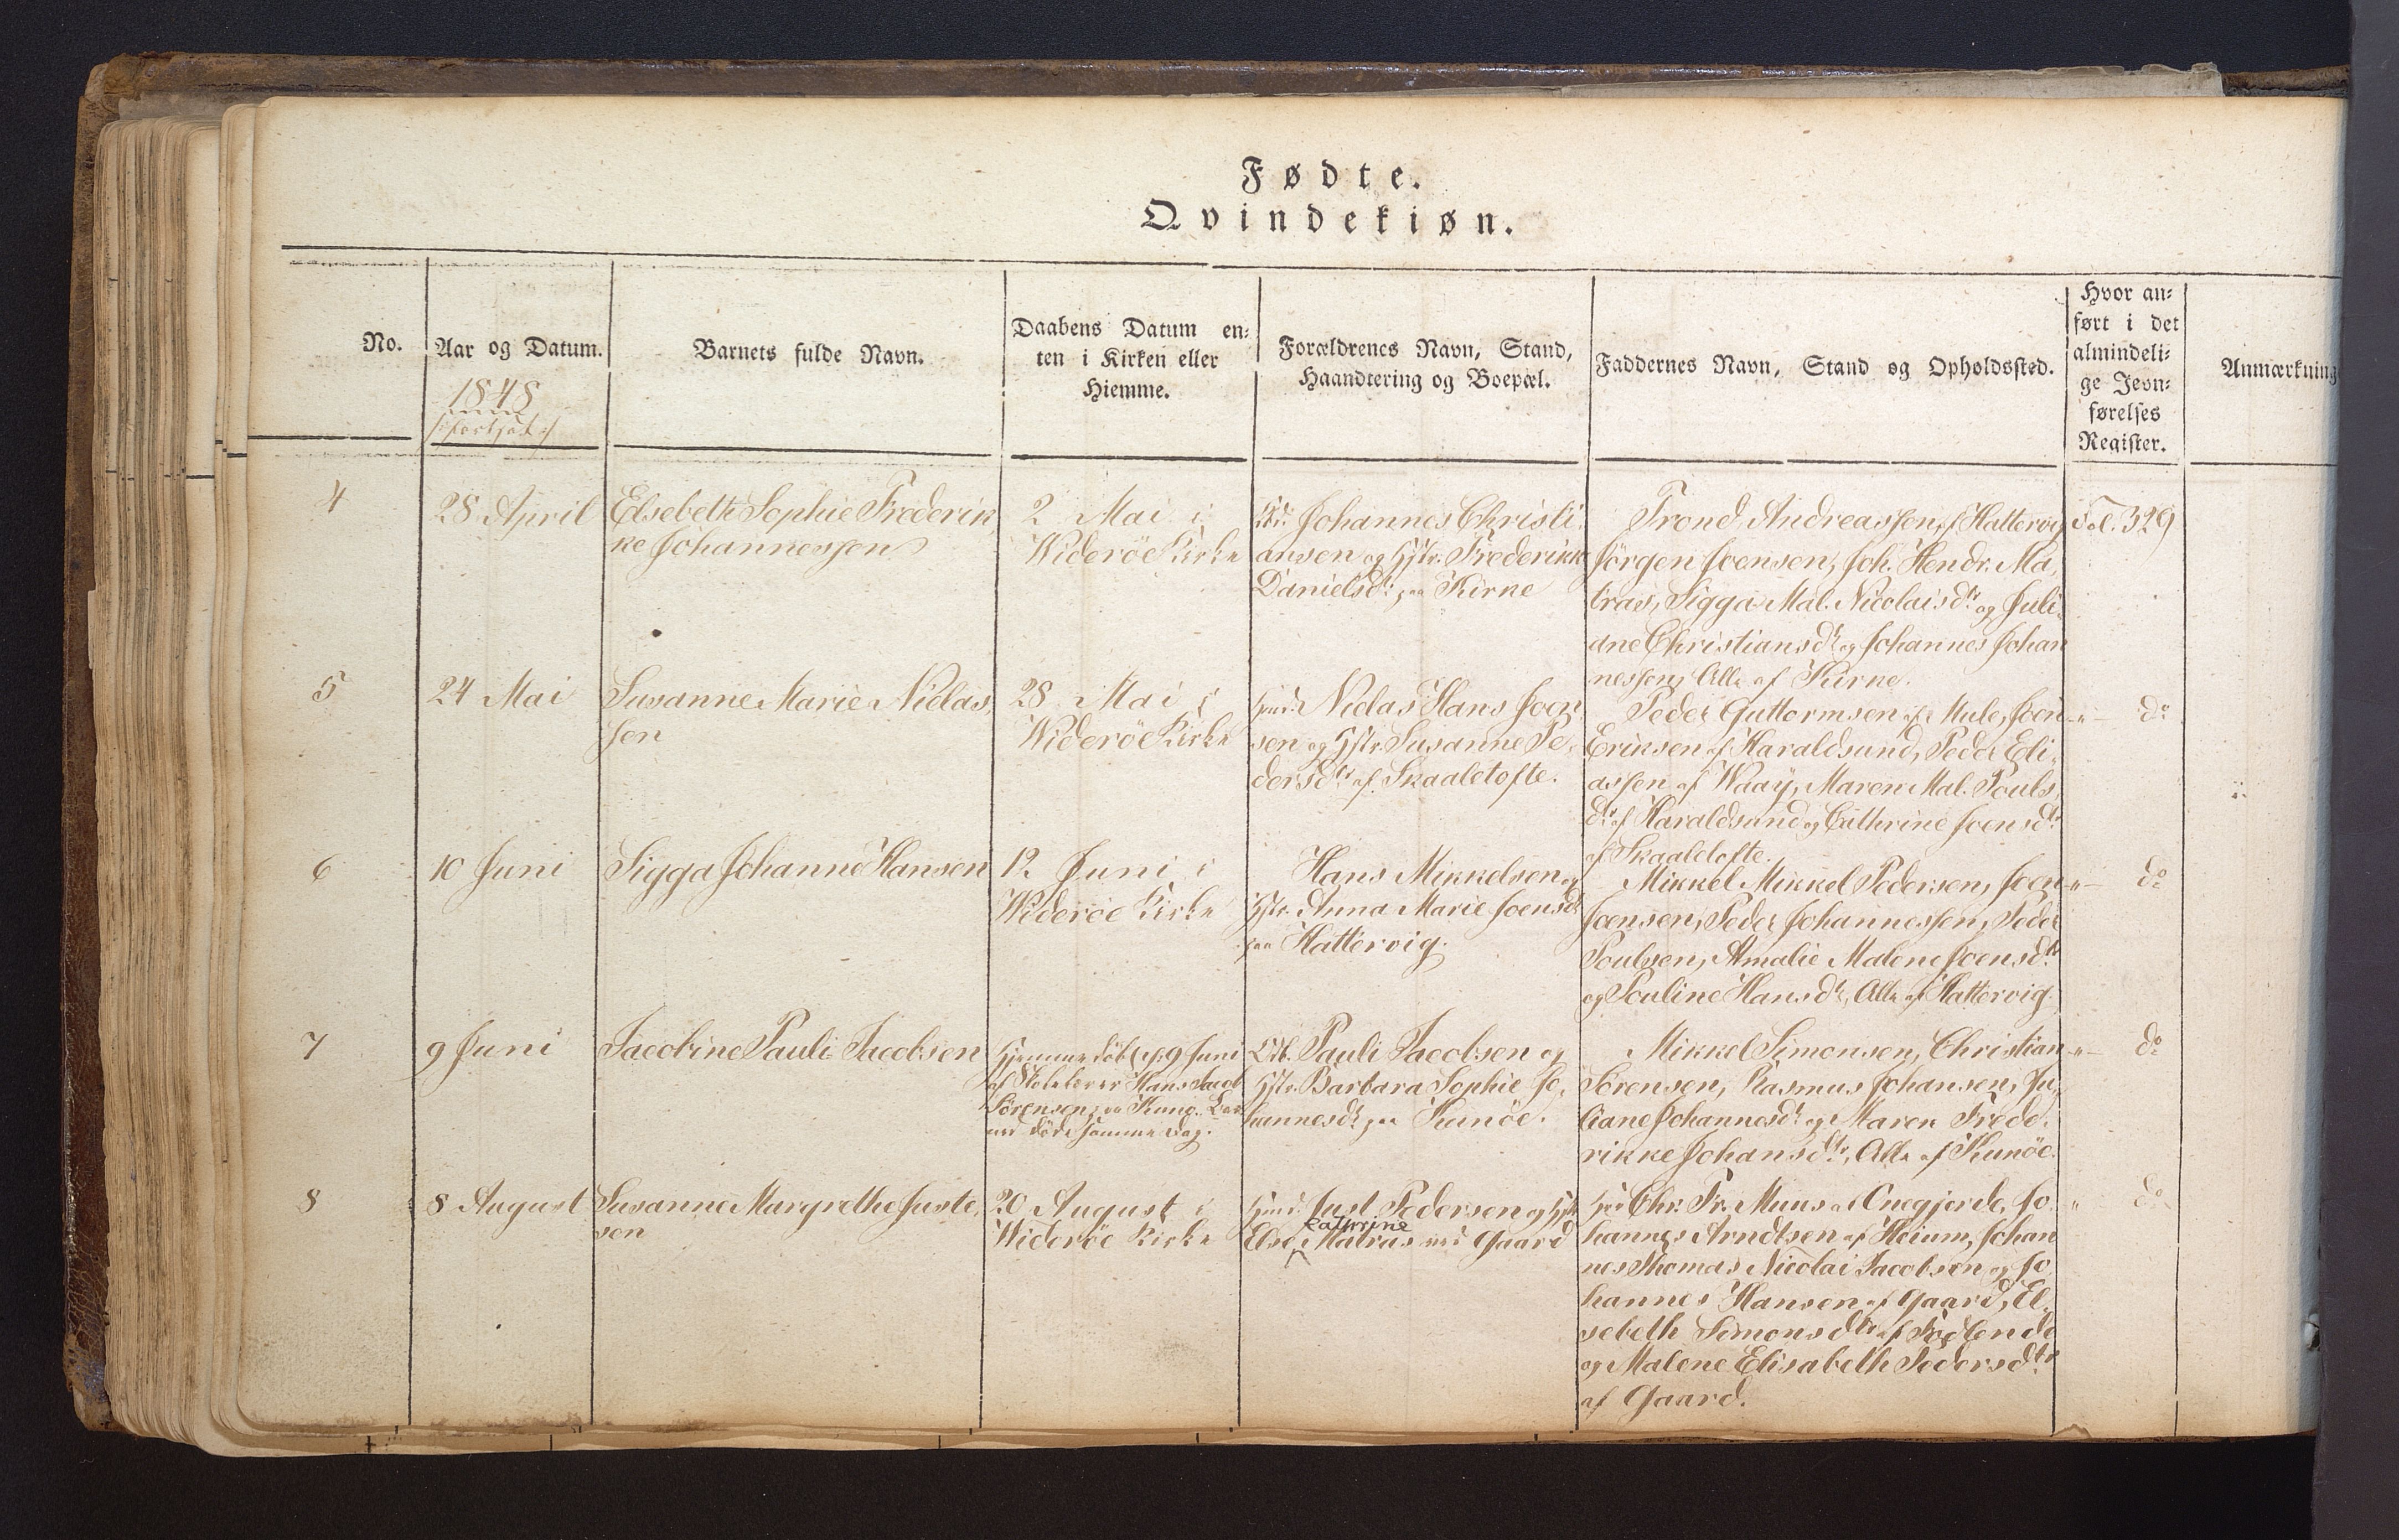 Fødte.
Qvindekiøn.
No.
Aar og Datum.
1848
/: fortsat :/
Barnets fulde Navn.
Daabens Datum en-
ten i Kirken eller
Hiemme.
Forældrenes Navn, Stand,
Haandtering og Boepæl.
Faddernes Navn, Stand og Opholdssted.
Hvor an-
ført i det
almindeli-
ge Jevn-
førelses
Register.
Anmærkning
4
28 April
Elsebeth Sophie Frederik
ke Johannessen
2 Mai i
Wideröe Kirke
Johannes Christi
ansen og Hstr. Frederikke
Danielsdr paa Kirne
Trond Andreassen, af Hattervig
Jörgen Joensen, Joh. Hendr. Ma,
tras, Sigga Mal. Nicolaisdtr og Juli
ane Christiansdr og Johannes Johan
nessen, Alle af Kirne.
Fol. 329
5
24 Mai
Susanne Marie Niclas,
sen
28 Mai i
Wideröe Kirke
Huusmd. Niclas Hans Joen
sen og Hstr. Susanne Pe,
dersdtr af Skaaletofte.
Peder Guttormsen af Mule, Joen
Eriksen af Haraldsund, Peder Eli,
assen af Waay, Maren Mal. Pouls
dr af Haraldsund og Cathrine Joensdr
af Skaaletofte.
-"- do
6
10 Juni
Sigga Johanne Hansen
12 Juni i
Wideröe Kirke
Hans Mikkelsen og
Hstr. Anna Marie Joensdr
paa Hattervig.
Mikkel Mikkel Pedersen, Joen
Joensen, Peder Johannessen, Peder
Poulsen, Amalie Malene Joensdtr
og Pouline Hansdr, Alle af Hattervig.
-"- do
7
9 Juni
Jacobine Pauli Jacobsen
Hjemmedöbt d. 9 Juni
af Skolelærer Hans Jacob
Sörensen paa Kunö. Bar
net döde samme Dag.
Pauli Jacobsen og
Hstr. Barbara Sophie Jo,
hannesdr paa Kunöe.
Mikkel Simonsen, Christian
Sörensen, Rasmus Johansen, Ju,
liane Johannesdr og Maren Frede,
rikke Johansdtr, Alle af Kunöe.
-"- do
8
8 August
Susanne Margrethe Juste,
sen
20 August i
Wideröe Kirke
Huusmd. Just Pedersen og Hstr.
Cathrine
Else Matras ved Gaard
Chr. Fr. Muus af Onegjerde, Jo
hannes Arndtsen af Heium, Johan
nes Thomas Nicolai Jacobsen og Jo
hannes Hansen af Gaard, El,
sebeth Simonsdtr af Födlende
og Malene Elisabeth Pedersdtr
af Gaard.
" do